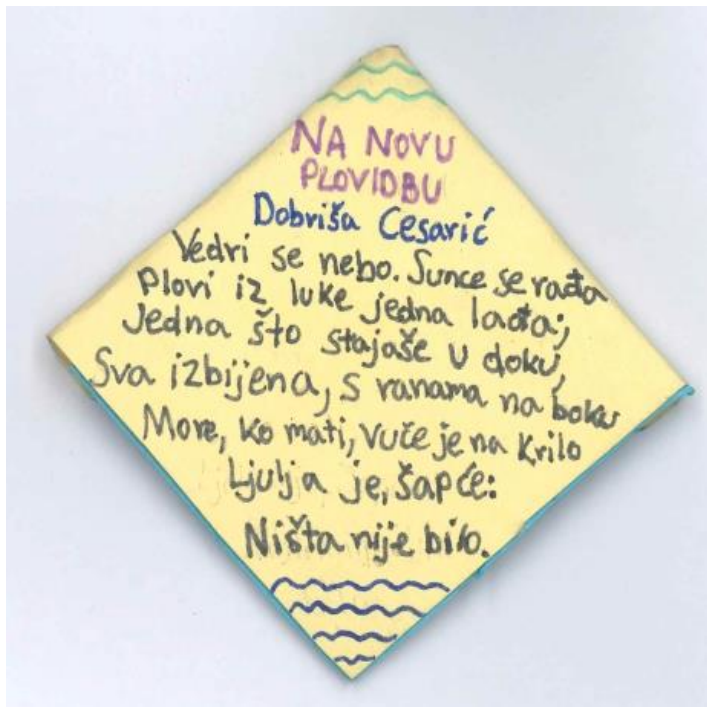 NA NOVU
PLOVIDBU
Dobriša Cesarić
Vedri se nebo. Sunce se rađa
Plovi iz luke jedna lađa;
Jedna što stajaše u doku,
Sva izbijena, s ranama na boku
More, ko mati, vuče je na krilo
Ljulja je, šapće:
Ništa nije bilo.